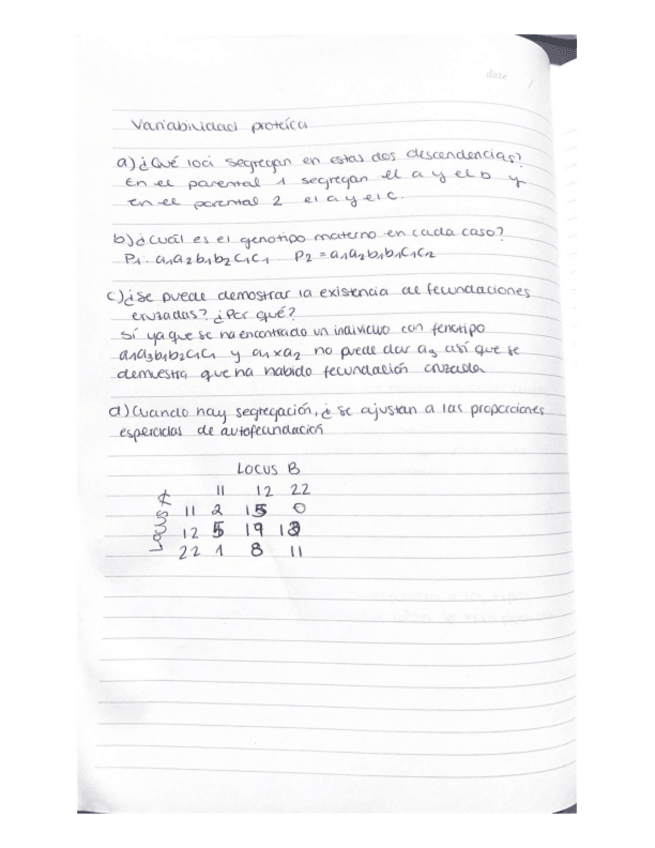 date /
Variabilidad proteíca
a) ¿Qué loci segregan en estas dos descendencias?
En el parental 1 segregan el a y el b y
en el parental 2 el a y el c.
b) ¿Cuál es el genotipo materno en cada caso?
P1: a1a2b1b2c1c1 P2 = a1a2b1b1c1c2
c) ¿Se puede demostrar la existencia de fecundaciones
cruzadas? ¿Por qué?
Sí ya que se ha encontrado un individuo con fenotipo
a1a3b1b2c1c1 y a1xa2 no puede dar a3 así que se
demuestra que ha habido fecundación cruzada
d) Cuando hay segregación, ¿se ajustan a las proporciones
espercidas de autofecundación
LOCUS B
11 12 22
Locus A
11 2 15 0
12 5 19
22 1 8 11